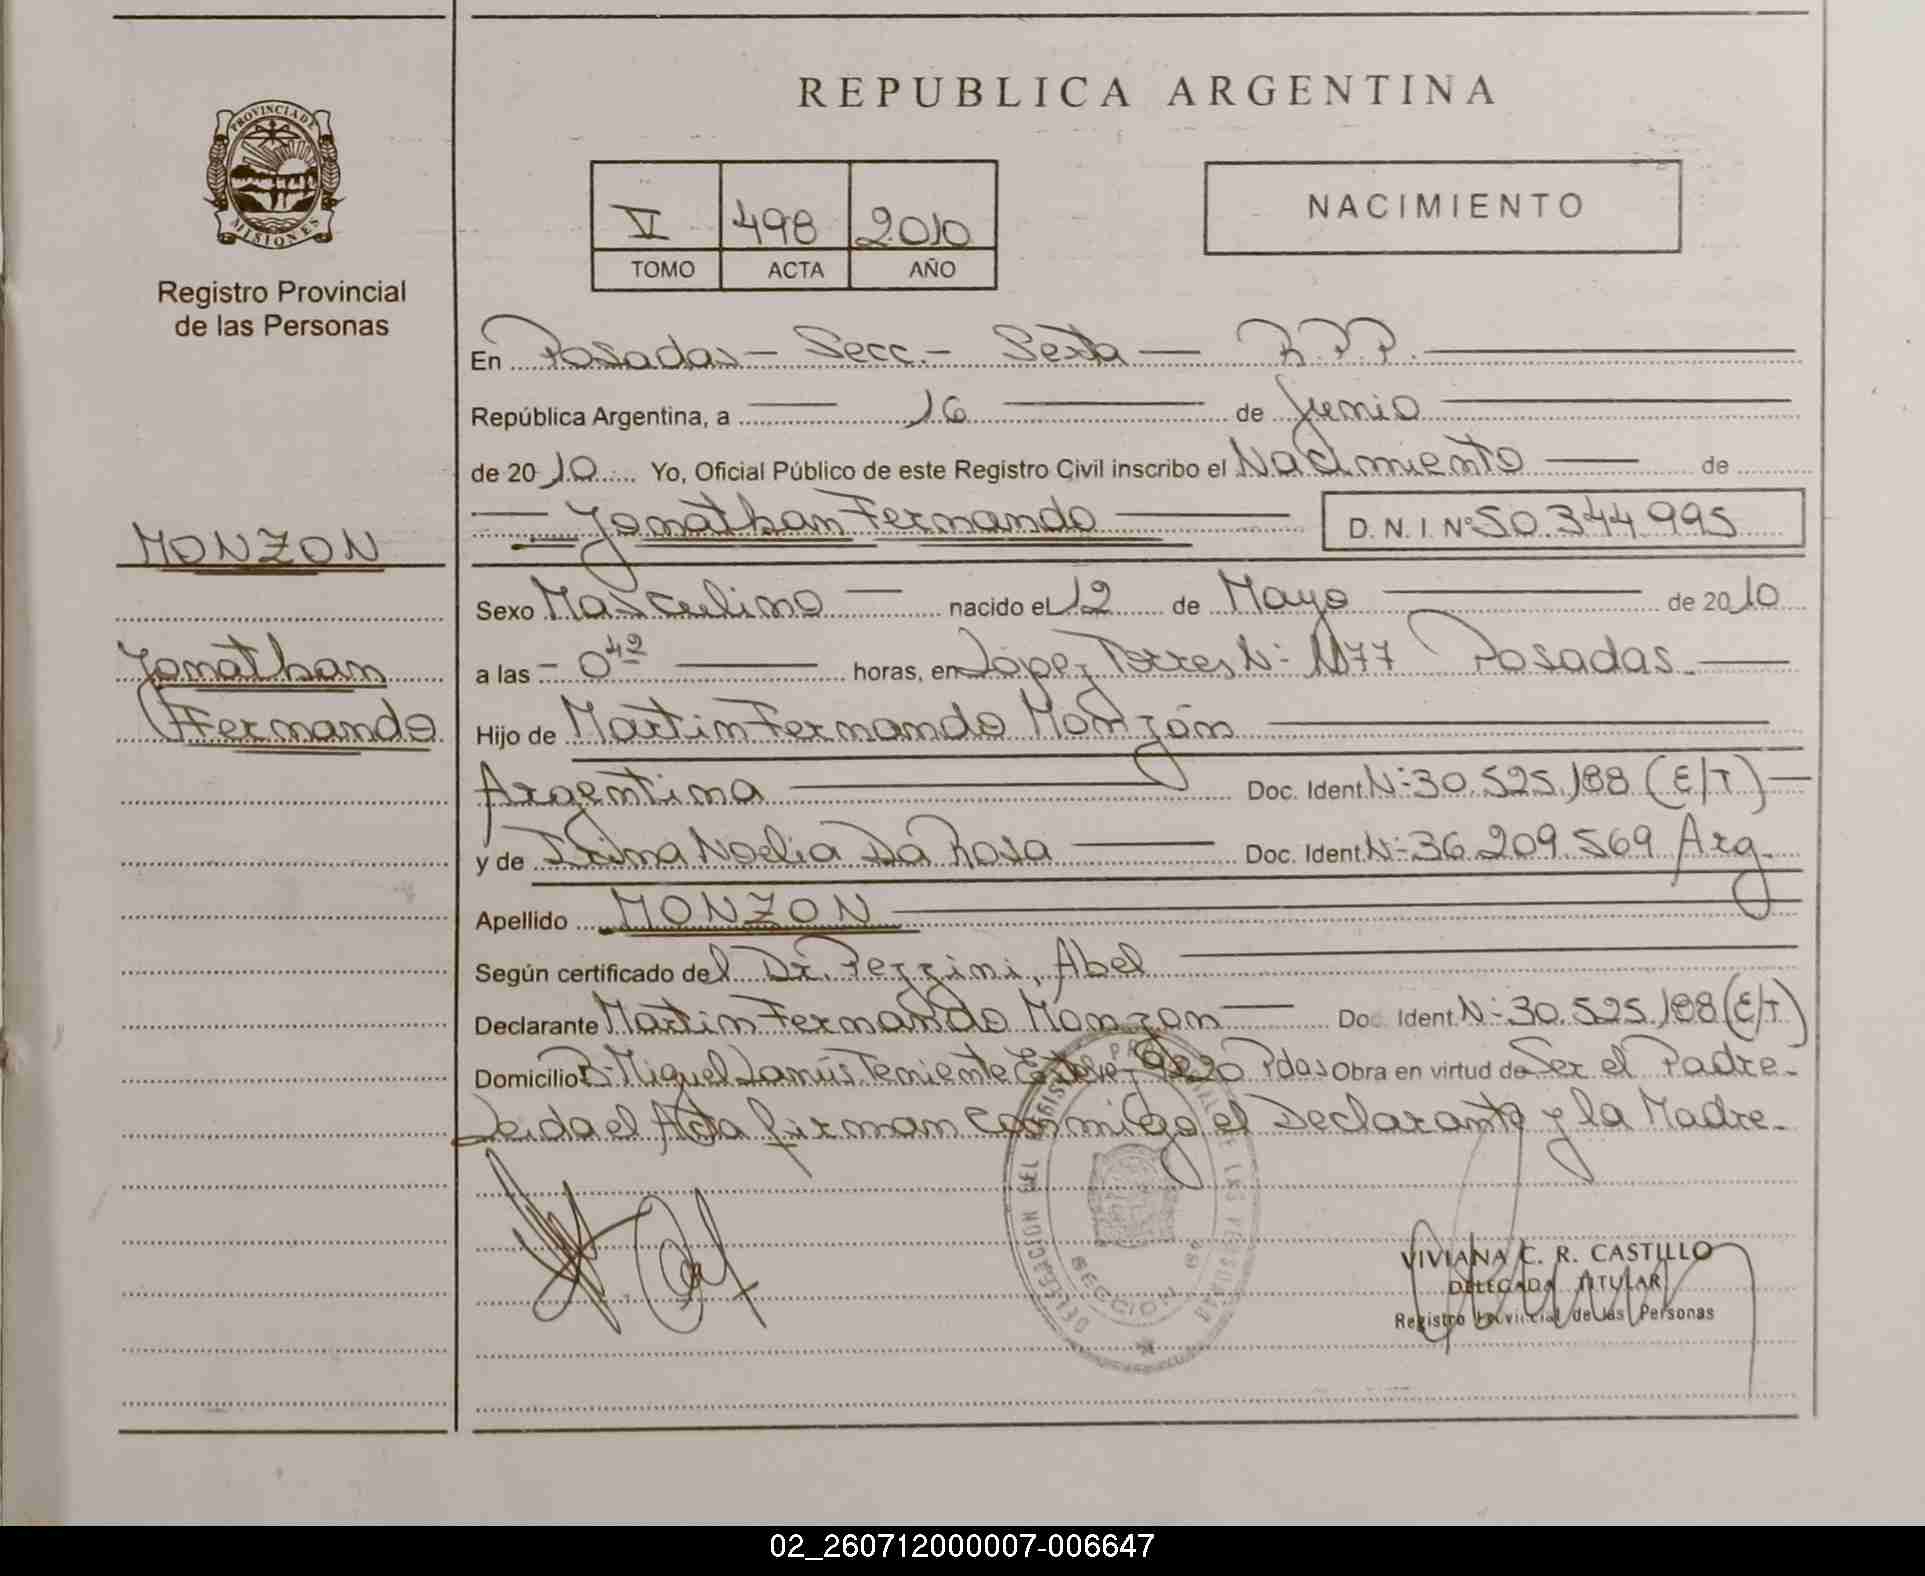 REPUBLICA ARGENTINA
PROVINCIA DE
MISIONES
Registro Provincial
de las Personas
V 498 2010
TOMO ACTA AÑO
NACIMIENTO
En Posadas - Secc. - Sexta - R.P.P.
República Argentina, a 16 de Junio
de 2010 Yo, Oficial Público de este Registro Civil inscribo el Nacimiento de
Jonathan Fernando D.N.I. Nº 50.344.995
MONZON
Sexo Masculino nacido el 12 de Mayo de 2010
Jonathan
a las - 0 42 horas, en López Torres N- 1177 Posadas.
Fernando
Hijo de Martin Fernando Monzón
Argentina Doc. Ident. N- 30.525.188 (E/T)
y de Noelia Da Rosa Doc. Ident. N- 36.209.569 Arg.
Apellido MONZON
Según certificado del Dr. Pezzini, Abel
Declarante Martin Fernando Monzon Doc. Ident. N- 30.525.188 (E/T)
Domicilio B- Miguel Lanús Teniente Pdas Obra en virtud de Ser el Padre.
Leida el Acta firman Conmigo el Declarante y la Madre.
DELEGACION DEL
SECCION
VIVIANA C. R. CASTILLO
DELEGADA TITULAR
Registro Provincial de las Personas
02_260712000007-006647